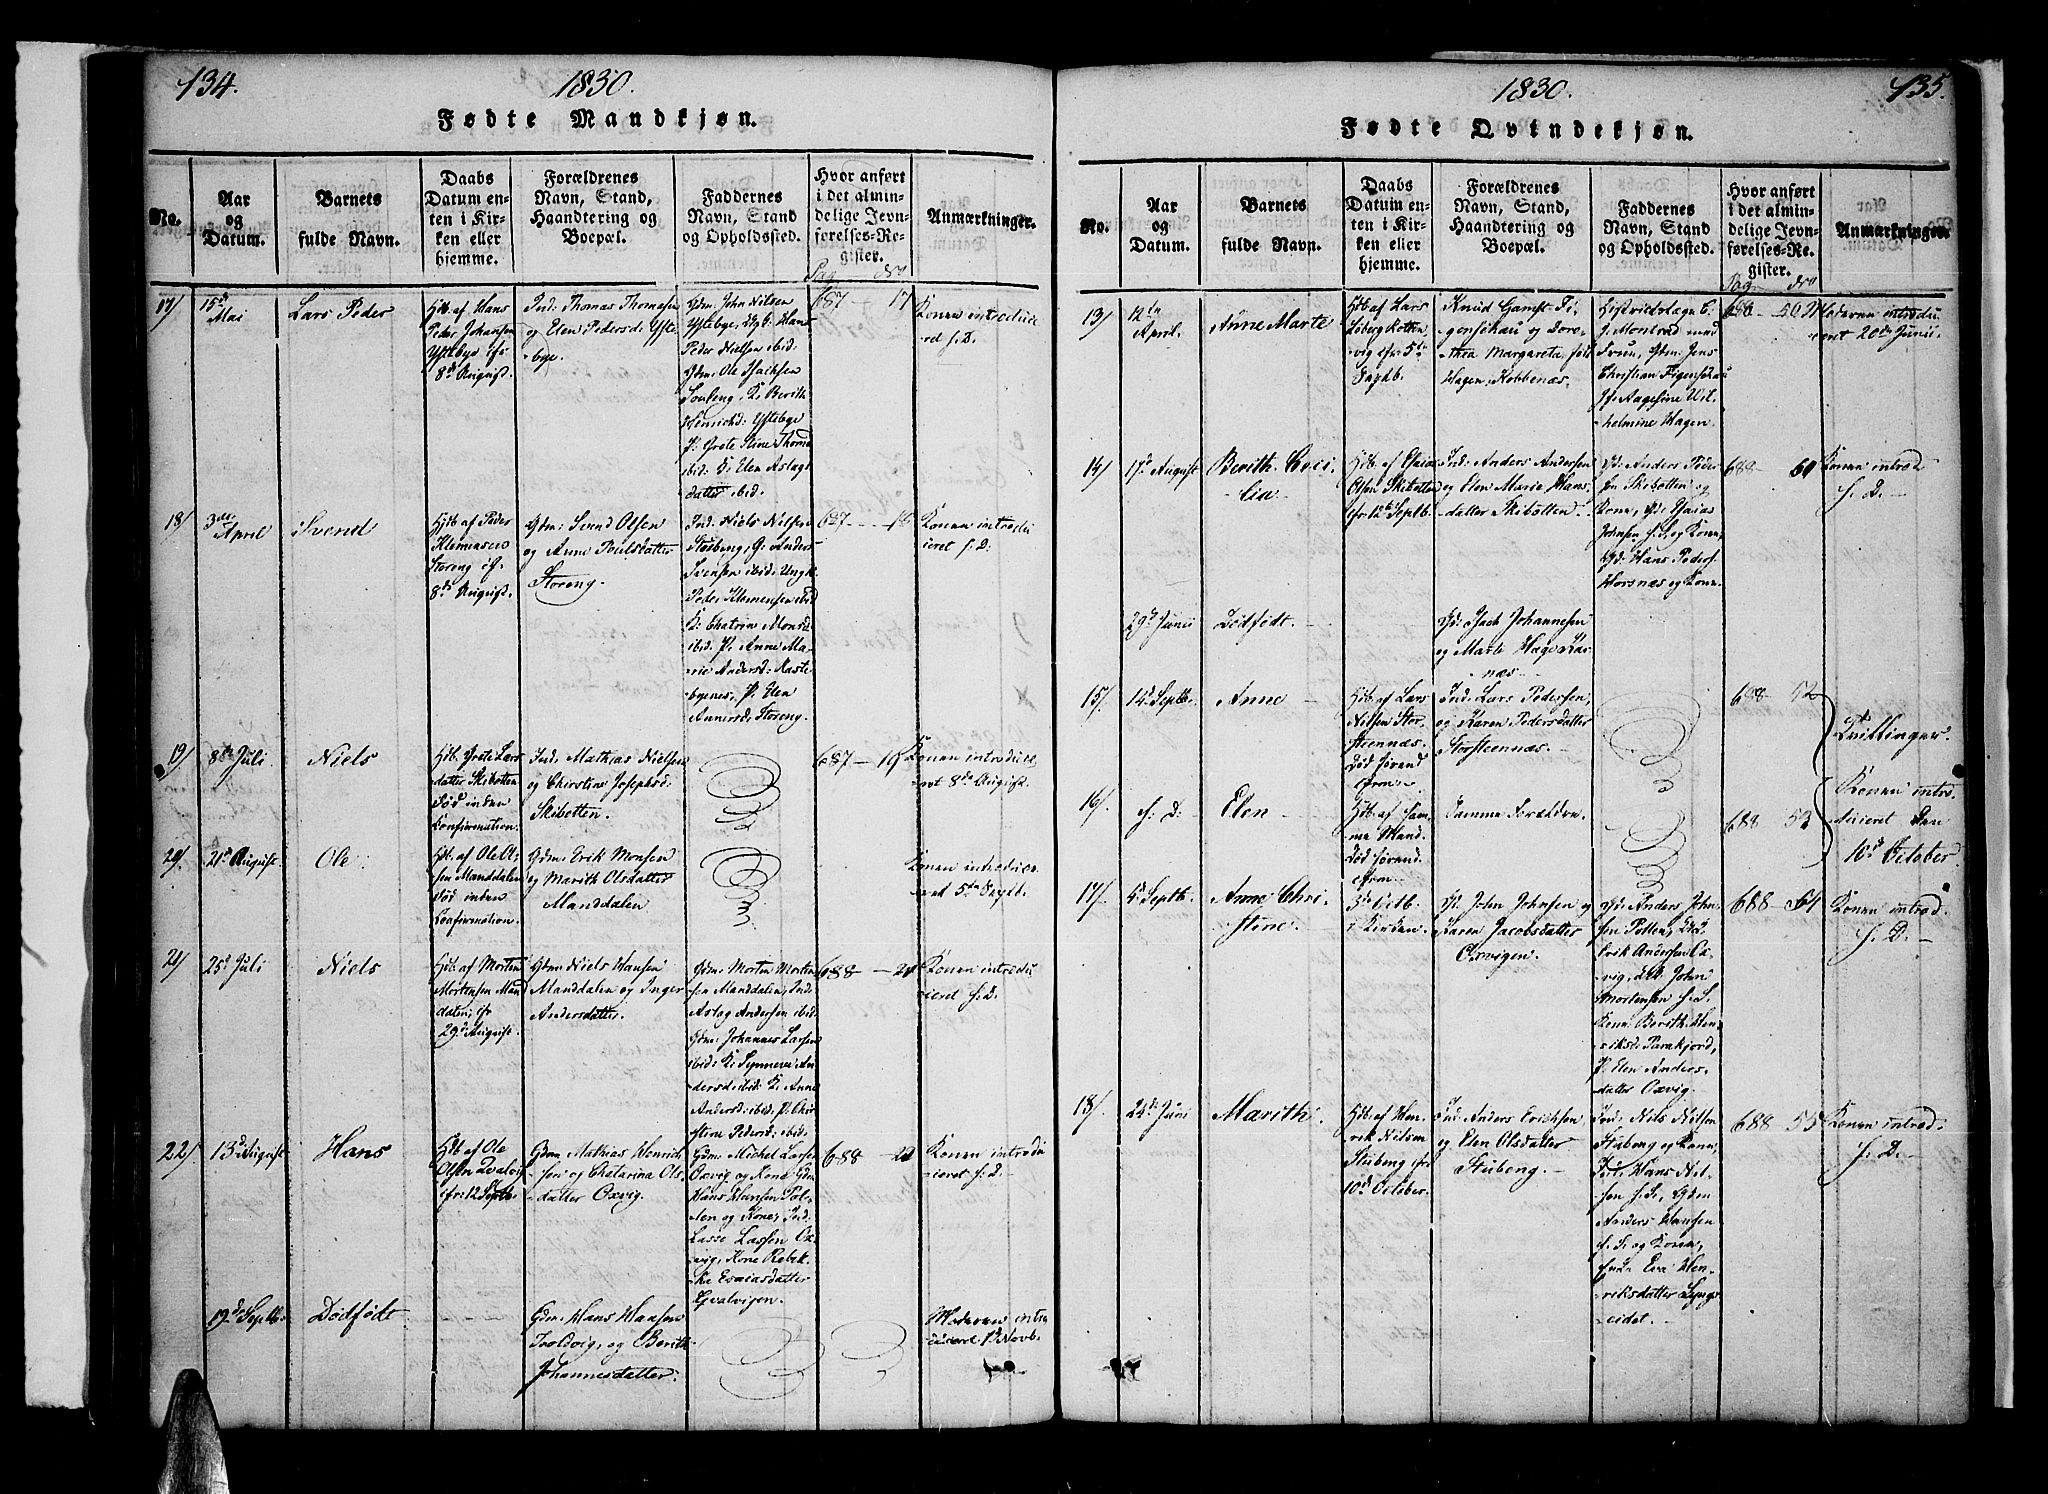 134.
1830.
Fødte Mandkjøn.
No.
Aar
og
Datum.
Barnets
fulde Navn.
Daabs
Datum en-
ten i Kir-
ken eller
hjemme.
Forældrenes
Navn, Stand,
Haandtering og
Boepæl.
Faddernes
Navn, Stand
og Opholdssted.
Hvor anført
i det almin-
delige Jevn-
førelses-Re-
gister.
Anmærkninger.
Pag No
17/
15d
Mai
Lars Peder
Hdb. af Hans
Peder Johansen
Yttebye
8d August.
Ind: Thomas Thomesen
og Elen Pedersd: Ytte-
bye.
Gdm: John Nilsen
Yttebye, Ugk: Hans
Peder Nielsen ibid:
Gdm: Ole Isachsen
K: Berith
Henrichsd: Yttebye
P: Grete Stine Thoms
ibid: K: Elen Aslags
datter ibid.
687 - 17
Konen introduce
ret s. D.
18/
3die
April
Svend
Hdb. af Peder
Klemensen
Storeng
8de August.
Gdm: Svend Olsen
og Anne Poulsdatter
Storeng.
Ind: Niels Nilsen
Stubeng, G: Anders
Svensen ibid: Ungk.
Peder Klemensen ibid
K: Chatrin Monsd
ibid. P: Anne Ma-
rie Andersd:
P: Elen
Storeng.
687 - 18
Konen introdu
ceret s. D:
19/
8de Juli
Niels
Hdb. Grete Lars
datter Skibotten
død inden
Confirmation.
Ind: Mathias Nielsen
og Chirstine Josephsd:
Skibotten.
687 - 19
Konen introduce
ret 8de August.
20/
21d August.
Ole.
Hdb. af Ole Ol-
sen Manddalen
død inden
Confirmation.
Gdm: Erik Monsen
og Marith Olsdatter
Manddalen
Konen introduce
ret 5te Septb.
21/
25d Juli
Niels
Hdb. af Morten
Mortensen Man
dalen,
29d August.
Gdm: Niels Hansen
Manddalen og Inger
Andersdatter.
Gdm: Morten Morten
sen Manddalen, Ind:
Aslag Andersen ibid:
Gdm: Johannes Larsen
ibid: K: Synneve An
dersd: ibid: K: Anne
Andersd: ibid: P: Chir
stine Pedersd: ibid.
688 - 21
Konen introdu
ceret s. D.
22/
13d August
Hans
Hdb. af Ole
Olsen Qvalvig
12 Septb.
Gdm: Mathias Henrich
sen og Chatarina Ols
datter Oxvig.
Gdm: Michel Larsen
Oxvig og Kone, Gdm
Hans Hansen Pol-
len og Kone, Ind:
Lasse Lassen Ox
vig, Kone Rebek-
ka Esaiasdatter
Qvalvigen.
688 - 22
Konen introdu
ceret s. D.
19de Septb.
Dødfødt
Gdm: Hans Hansen
og Berith
Johannesdatter.
Moderen intro
duceret 1d Novb.
1830.
135.
Fødte Qvindekjøn.
No.
Aar
og
Datum.
Barnets
fulde Navn.
Daabs
Datum en-
ten i Kir-
ken eller
hjemme.
Forældrenes
Navn, Stand,
Haandtering og
Boepæl.
Faddernes
Navn, Stand
og Opholdssted.
Hvor anført
i det almin-
delige Jevn-
førelses-Re-
gister.
Anmærkninger.
Pag No
13/
12te
April.
Anne Marte
Hdb. af Lars
vig 5te
Septb.
Knud Gamst Fi-
genschau og Doro-
thea Margareta, født
Hagen, Kobbenæs.
Districtslæge C.
J. Montrad med
Fruen, Gdm: Jens
Christian Figenschau
Jf: Aagesine Wil-
helmine Hagen.
50
Moderen introdu
ceret 20de Junii.
14/
17d August
Berith Ceci-
lia
Hdb. af Esaias
Olsen Skibotten
12te Septb.
Ind: Anders Andersen
og Elen Marie Hans-
datter Skibotten.
Gd: Anders Peder
sen Skibotten og
Kone, Gd: Esaias
Johnsen s. S. og Konen,
Gd: Hans Peders
Horsnæs og Kone.
688
Konen introd
s. D.
29d Junii
Dødfødt.
Gd: Isach Johannesen
og Marte
næs.
15/
14d Septb.
Anne
Hdb. af Lars
Nilsen Stor-
steennæs
Død forend
Ind: Lars Pedersen,
og Karen Pedersdatter
Storsteennæs.
688 52
Tvillinger.
Konen intro-
duceret den
10d October.
16/
s. D:
Elen
Hdb. af sam-
me Mand
død forend
Samme Forældre.
688 53
17/
5d Septb.
Anne Chri-
stine.
3d Octb.
i Kirken.
Gd. John Johnsen og
Karen Jacobsdatter
Oxvigen.
Gd: Anders John-
sen Pollen,
Erik Andersen Ox-
vig, John
Mortensen s. S.
Kone Berith Hen-
riksd: Parakjord,
P: Elen Anders-
datter Oxvig.
688 54
Konen introd.
s. D.
18/
24de Juni
Marith.
Hdb. af Hen-
rik Nilsen
Stubeng
10d October.
Ind: Anders Erichsen
og Elen Olsdatter
Stubeng.
Ind: Nils Nilsen
Stubeng og Kone,
Ind: Hans Nil-
sen s. S., Gdm
Anders Hansen
s. S. og Konen,
Eva Hen-
riksdatter Lyngs-
eidet.
688 55
Konen introd.
s. D.